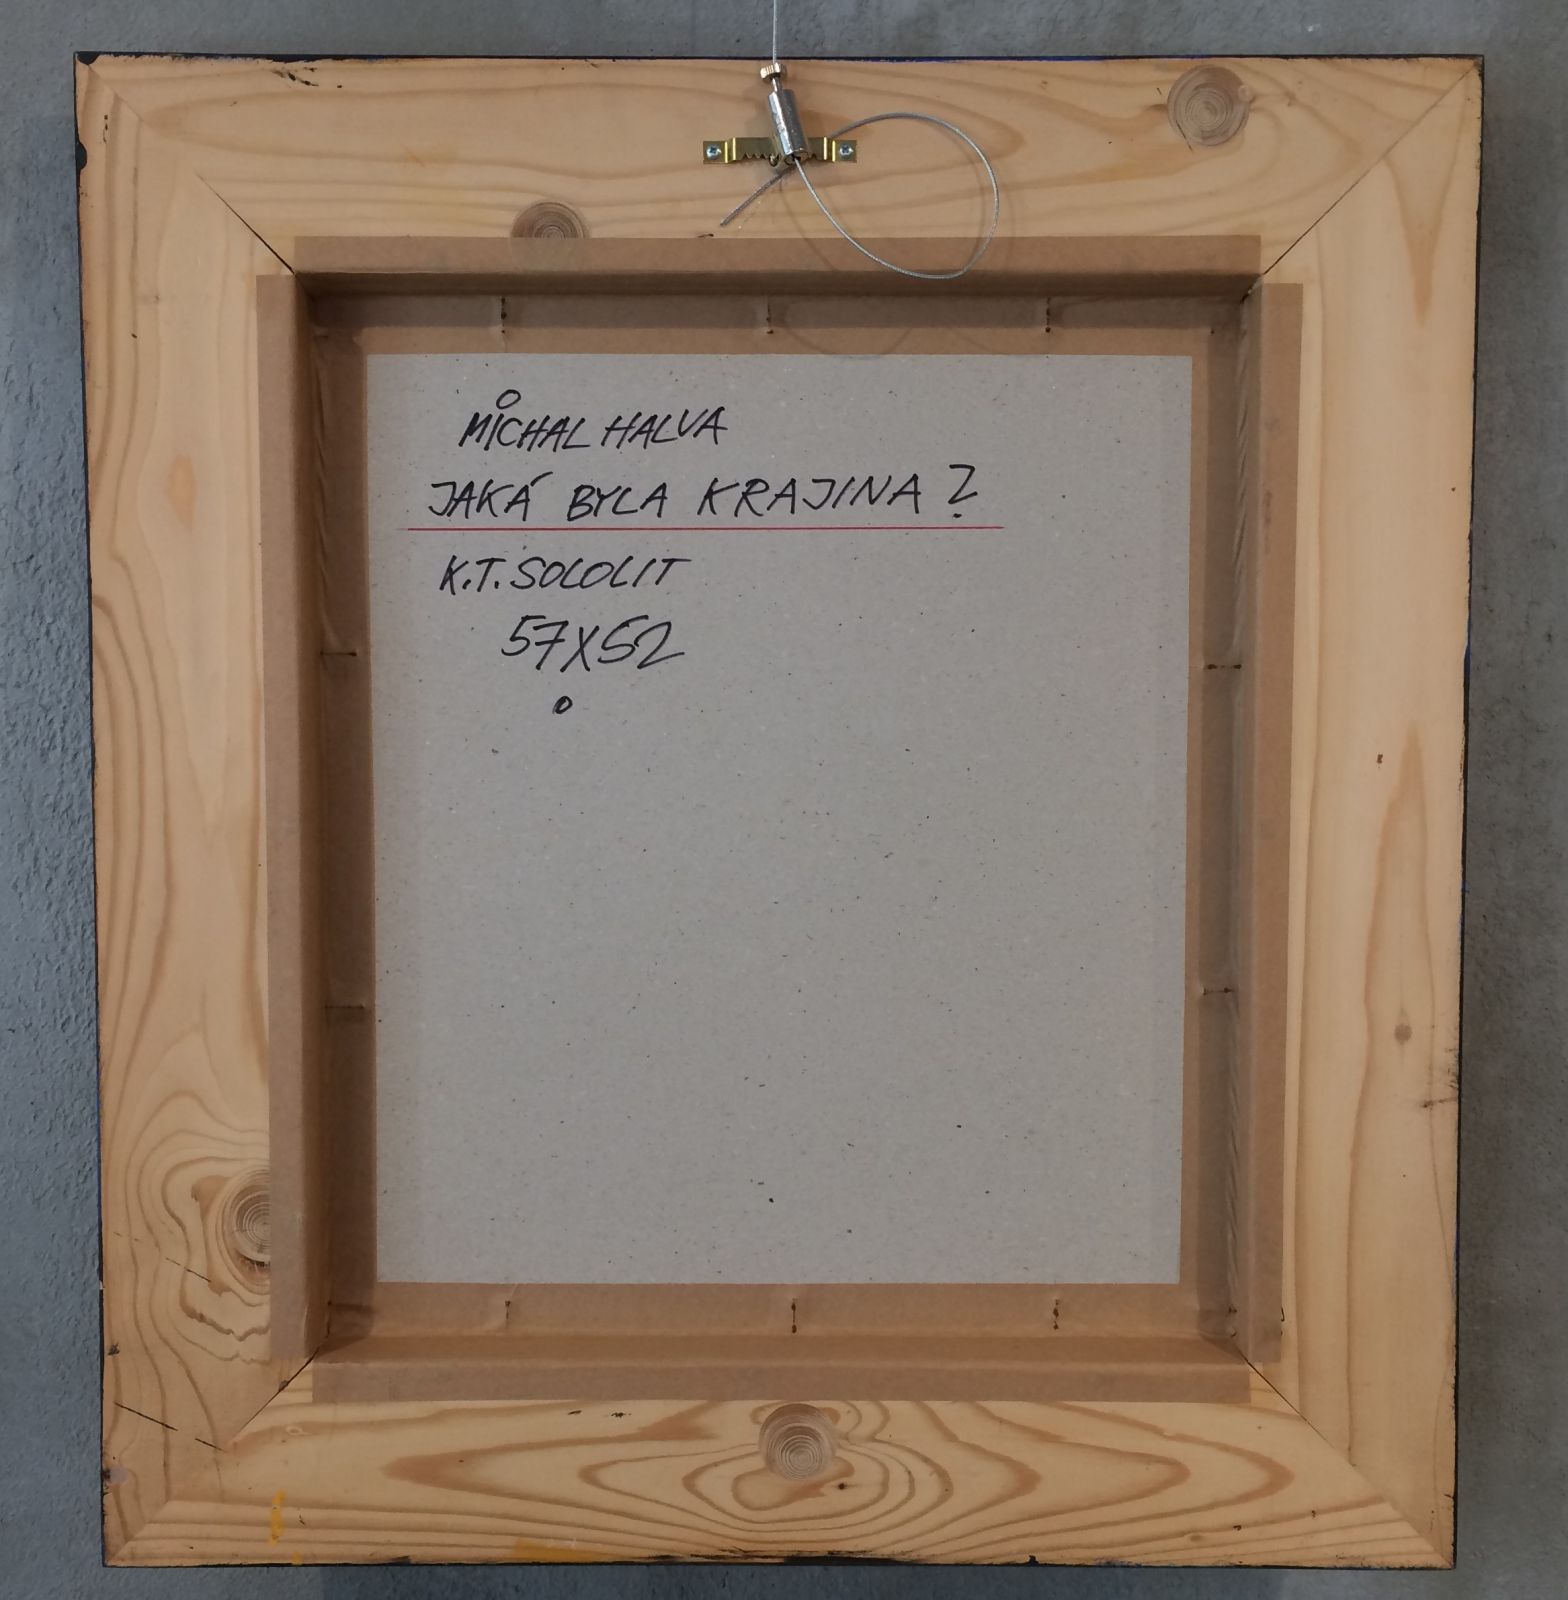 MICHAL HALVA
JAKÁ BYLA KRAJINA?
K.T. SOLOLIT
57X52